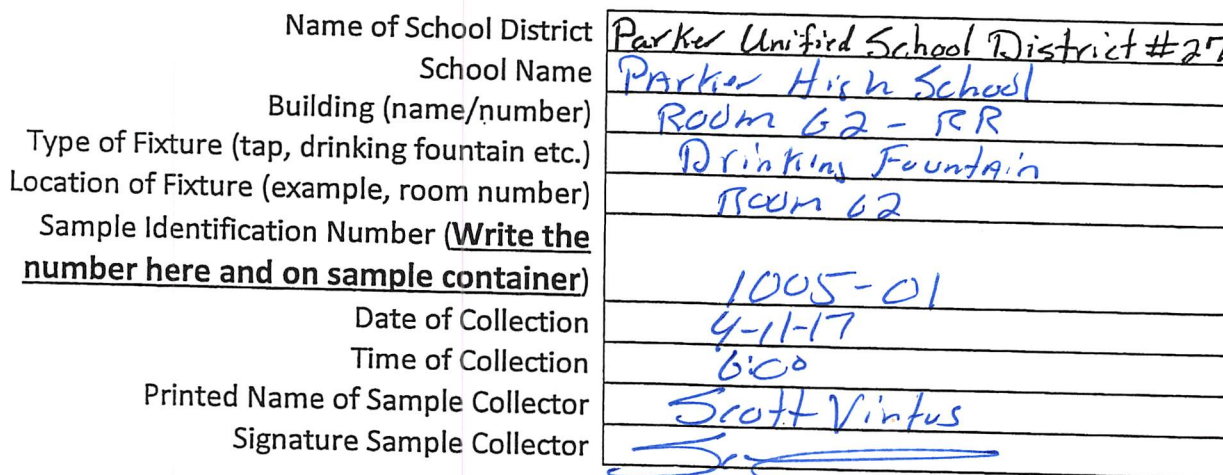 Name of School District Parker Unified School District #27
School Name Parker High School
Building (name/number) Room 62 - RR
Type of Fixture (tap, drinking fountain etc.) Drinking Fountain
Location of Fixture (example, room number) Room 62
Sample Identification Number (Write the
number here and on sample container) 1005-01
Date of Collection 4-11-17
Time of Collection 6:00
Printed Name of Sample Collector Scott Vintus
Signature Sample Collector